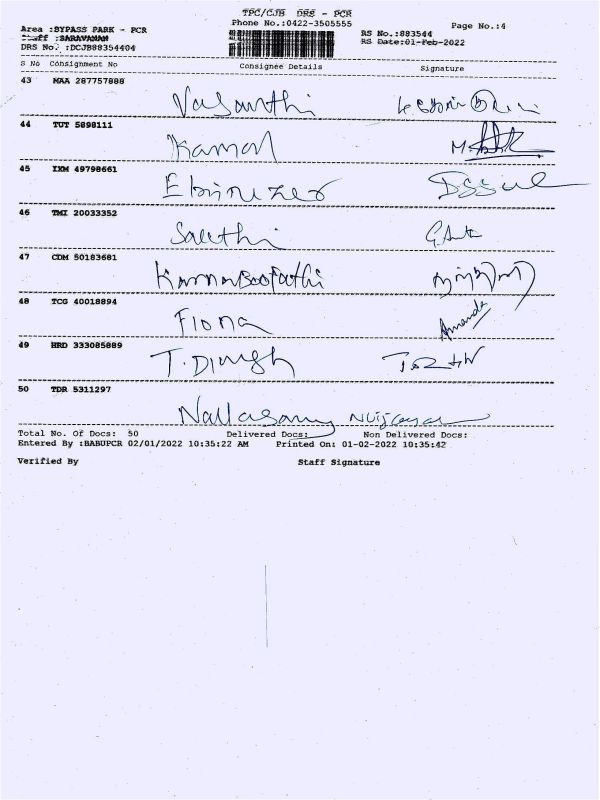 TPC/CJB DRS - PCR
Area :BYPASS PARK - PCR Phone No.:0422-3505555 Page No.:4
Staff :SARAVANAN RS No.:883544
DRS No. :DCJB88354404 RS Date:01-Feb-2022
S No Consignment No Consignee Details Signature
43 MAA 287757888
Vasanthi
44 TUT 5898111
Kamal
45 IXM 49798661
Ebinezer
46 TMI 20033352
Saethi
47 CDM 50183681
Karnaboopathi
48 TCG 40018894
Fiona Amanda
49 HRD 333085889
T. Dinesh
50 TDR 5311297
Nallasamy
Total No. Of Docs: 50 Delivered Docs: Non Delivered Docs:
Entered By :BABUPCR 02/01/2022 10:35:22 AM Printed On: 01-02-2022 10:35:42
Verified By Staff Signature